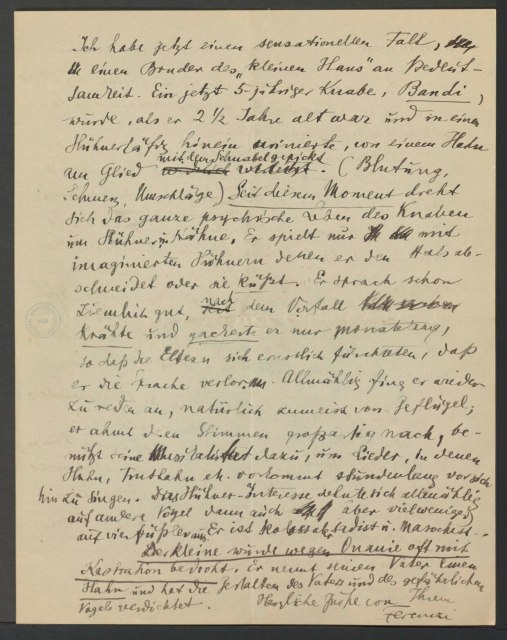 Ich habe jetzt einen sensationellen Fall,
einen Bruder des „kleinen Hans" an Bedeut-
samkeit. Ein jetzt 5-jähriger Knabe, Bandi,
wurde, als er 2 1/2 Jahre alt war und in einen
Hühnerkäfig hinein urinierte, von einem Hahn
mit dem Schnabel gepickt
am Glied verletzt. (Blutung,
Schmerz, Umschläge) Seit diesem Moment dreht
sich das ganze psychische Leben des Knaben
um Hühner u. Hähne. Er spielt nur mit
imaginierten Hühnern denen er den Hals ab-
schneidet oder sie küßt. Er sprach schon
ziemlich gut, nach dem Vorfall
krähte und gackerte er nur monatelang,
so daß die Eltern sich ernstlich fürchteten, daß
er die Sprache verloren. Allmählig fing er wieder
zu reden an, natürlich zumeist von Geflügel;
er ahmt deren Stimmen großartig nach, be-
nützt seine Musikalität dazu, um Lieder, in denen
Huhn, Truthahn etc. vorkommt stundenlang vor sich
hin zu singen. Dies Hühner-Interesse dehnte sich allmählig
auf andere Vögel dann auch aber viel weniger
auf vierfüßler aus. Er ist kolossaler Sadist u. Masochist.
Der kleine wurde wegen Onanie oft mit
Kastration bedroht. Er nennt seinen Vater einen
Hahn und hat die Gestalten des Vaters und des gefährlichen
Vogels verdichtet.
Herzliche Grüße von Ihrem
Ferenczi